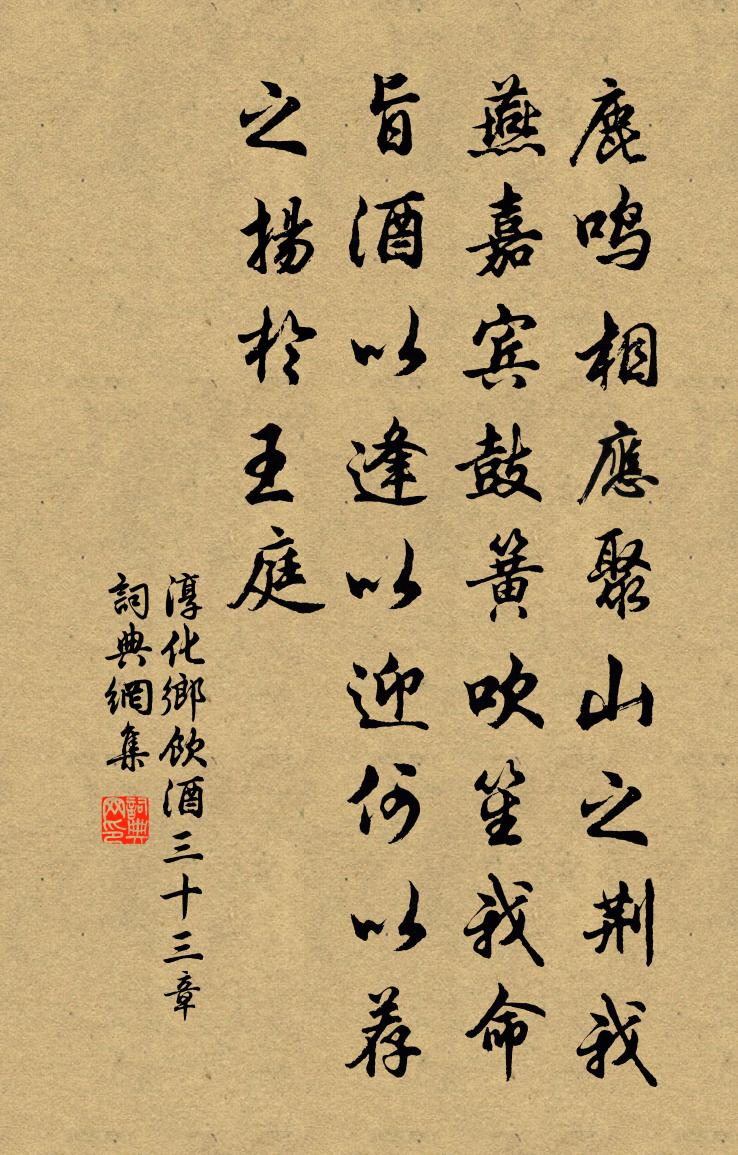 鹿鸣相應聚山之荆我
燕嘉宾鼓簧吹笙我命
旨酒以逢以迎何以荐
之揚於王庭
淳化鄉飲酒三十三章
詞典網集
詞典网印